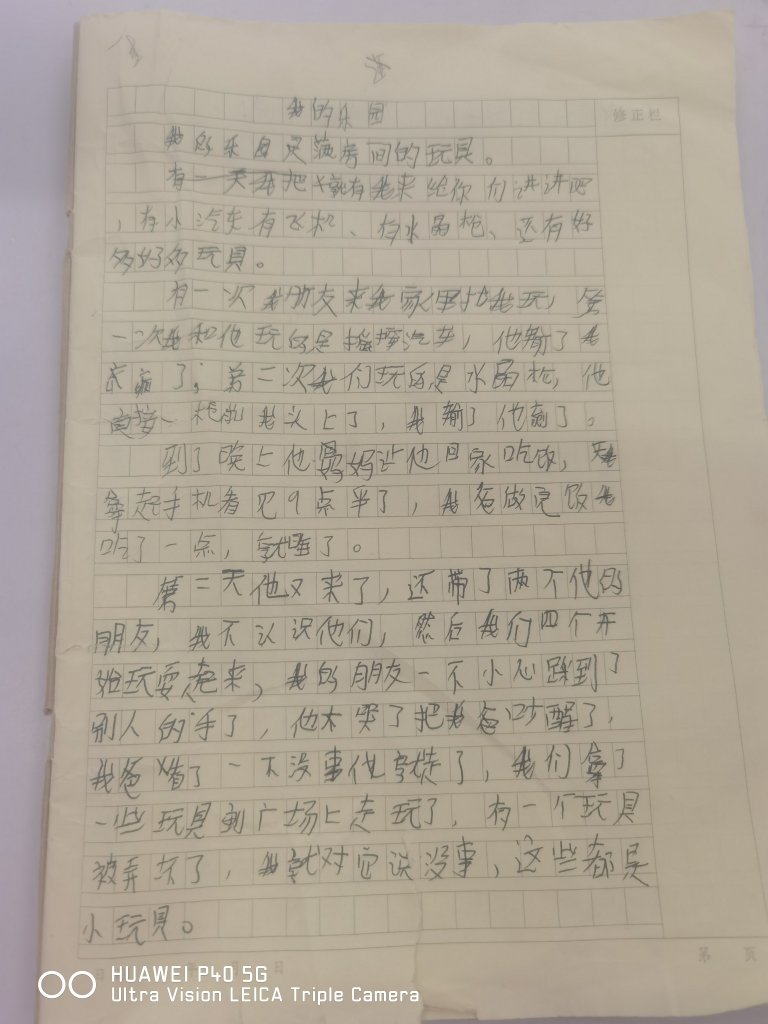 我的乐园
修正栏
我的乐园是满房间的玩具。
有一天我把 就有我来给你们讲讲吧
，有小汽车有飞机、有水晶枪、还有好
多好多玩具。
有一次我朋友来我家里找我玩，第
一次我和他玩的是 汽车，他输了我
赢了；第二次我们玩的是水晶枪，他
直接一枪 我头上了，我输了他 了。
到了晚上他妈妈 他回家吃饭，我
拿起手机看见9点半了，我爸做完饭我
吃了一点，就睡了。
第二天他又来了，还带了两个他的
朋友，我不认识他们，然后我们四个开
始玩耍起来，我的朋友一不小心踩到了
别人的手了，他大哭了把我爸吵醒了，
我爸 看了一下没事他就走了，我们拿了
一些玩具到广场上去玩了，有一个玩具
被弄坏了，我就对它说没事，这些都是
小玩具。
月 日
第 页
HUAWEI P40 5G
Ultra Vision LEICA Triple Camera